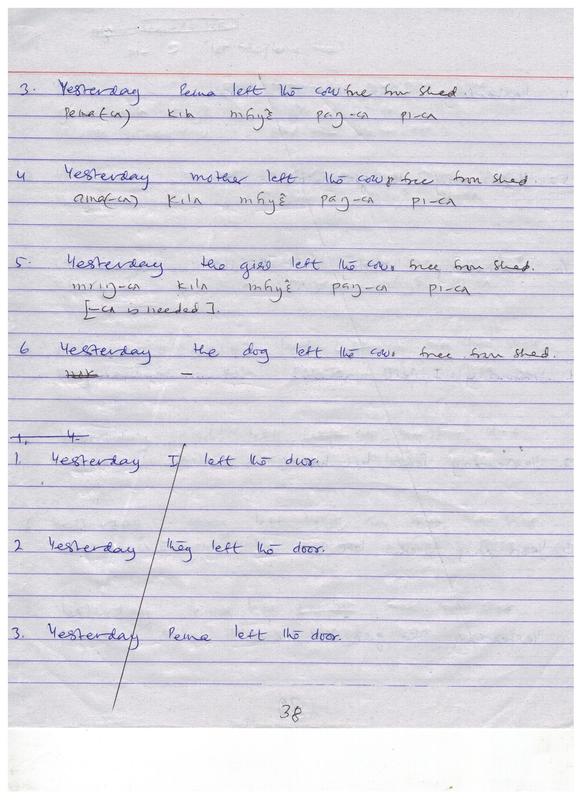 3. Yesterday Pema left the cow free from shed.
Pema(-cʌ) kilʌ mhyɛ̃ pʌŋ-cʌ pi-cʌ
4 Yesterday mother left the cow free from shed.
ama(-cʌ) kilʌ mhyɛ̃ pʌŋ-cʌ pi-cʌ
5. Yesterday the girl left the cow free from shed.
mriŋ-cʌ kilʌ mhyɛ̃ pʌŋ-cʌ pi-cʌ
[-cʌ is needed].
6 Yesterday the dog left the cow free from shed.
–
1. Yesterday I left the door.
2 Yesterday they left the door.
3. Yesterday Pema left the door.
38